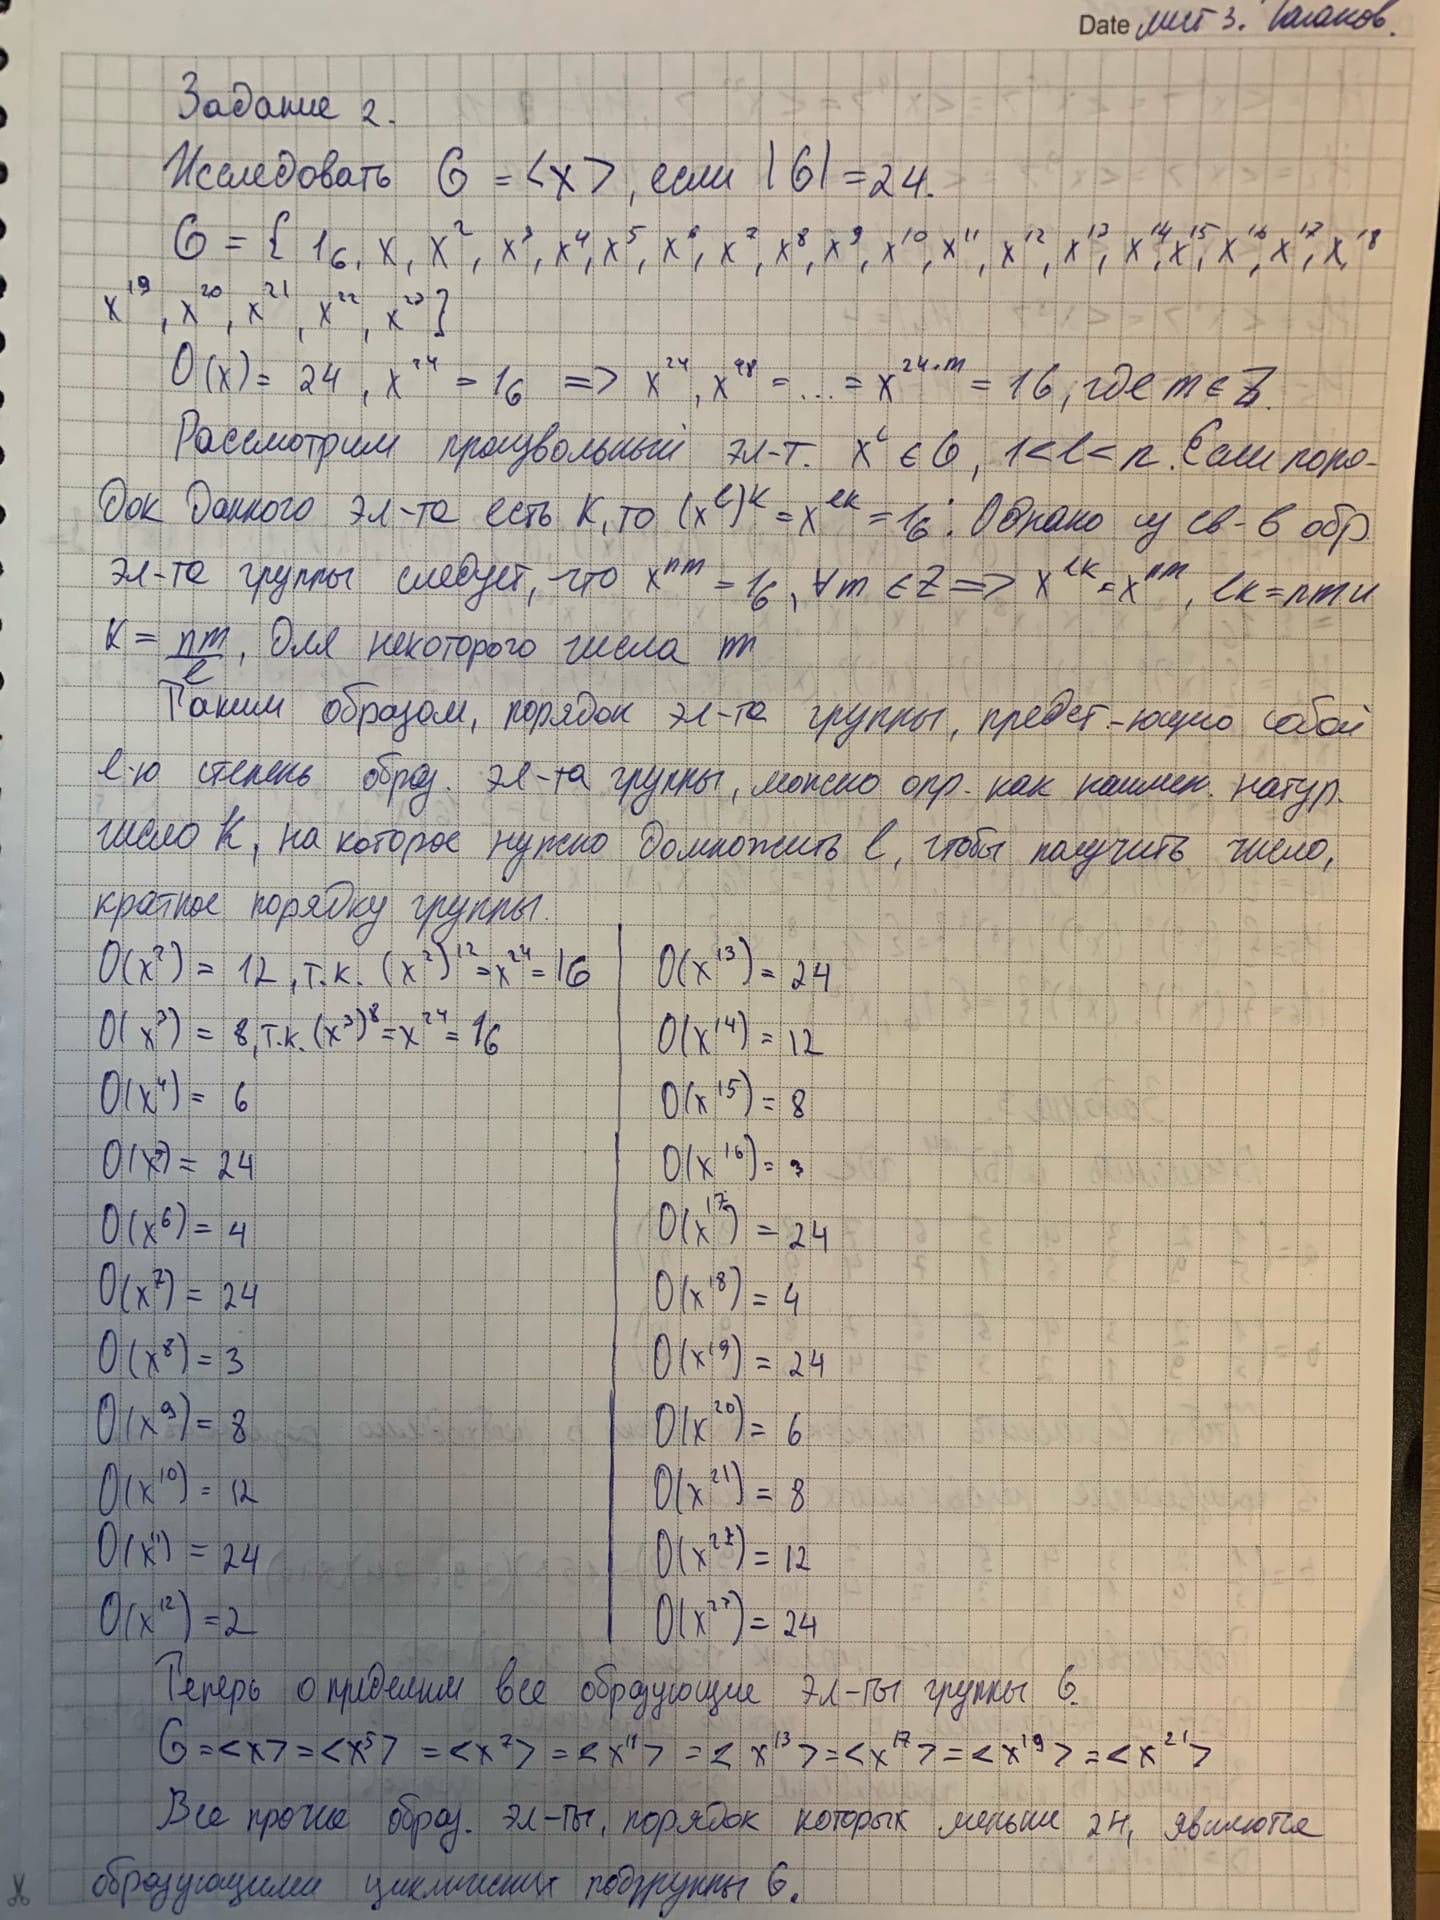 Date лист 3. Галанов.
Задание 2.
Исследовать G = <x>, если |G| = 24.
G = { 1_G, x, x², x³, x⁴, x⁵, x⁶, x⁷, x⁸, x⁹, x¹⁰, x¹¹, x¹², x¹³, x¹⁴, x¹⁵, x¹⁶, x¹⁷, x¹⁸,
x¹⁹, x²⁰, x²¹, x²², x²³}
O(x) = 24, x²⁴ = 1_G => x²⁴, x⁴⁸ = ... = x^{24·m} = 1_G, где m ∈ Z.
Рассмотрим произвольный эл-т. x^l ∈ G, 1 < l < n. Если поря-
док данного эл-та есть k, то (x^l)^k = x^{lk} = 1_G. Однако из св-в обр.
эл-та группы следует, что x^{nm} = 1_G, ∀m ∈ Z => x^{lk} = x^{nm}, lk = nm и
k = nm/l, для некоторого числа m
Таким образом, порядок эл-та группы, предст-ющию собой
l-ю степень образ. эл-та группы, можно опр. как наимен. натур.
число k, на которое нужно домножить l, чтобы получить число,
кратное порядку группы.
O(x²) = 12, т.к. (x²)¹² = x²⁴ = 1_G
O(x³) = 8, т.к. (x³)⁸ = x²⁴ = 1_G
O(x⁴) = 6
O(x⁵) = 24
O(x⁶) = 4
O(x⁷) = 24
O(x⁸) = 3
O(x⁹) = 8
O(x¹⁰) = 12
O(x¹¹) = 24
O(x¹²) = 2
O(x¹³) = 24
O(x¹⁴) = 12
O(x¹⁵) = 8
O(x¹⁶) = 3
O(x¹⁷) = 24
O(x¹⁸) = 4
O(x¹⁹) = 24
O(x²⁰) = 6
O(x²¹) = 8
O(x²²) = 12
O(x²³) = 24
Теперь определим все образующие эл-ты группы G.
G = <x> = <x⁵> = <x⁷> = <x¹¹> = <x¹³> = <x¹⁷> = <x¹⁹> = <x²¹>
Все прочие образ. эл-ты, порядок которых меньше 24, являются
образующими циклических подгруппы G.